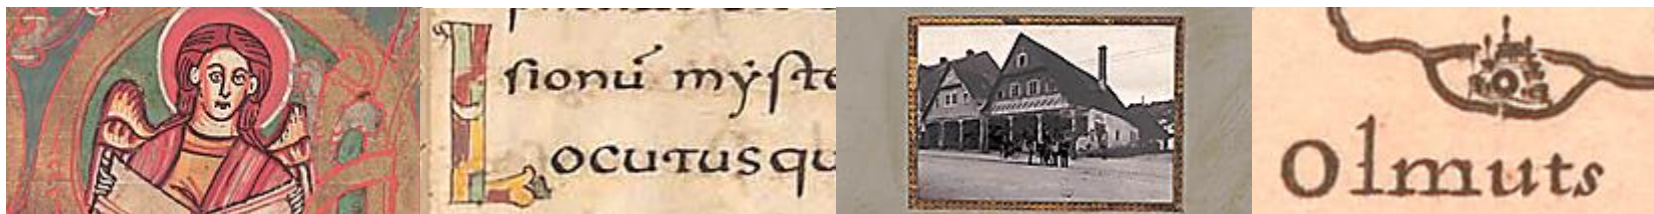 sionú mẏste
Locutus qu
Olmuts